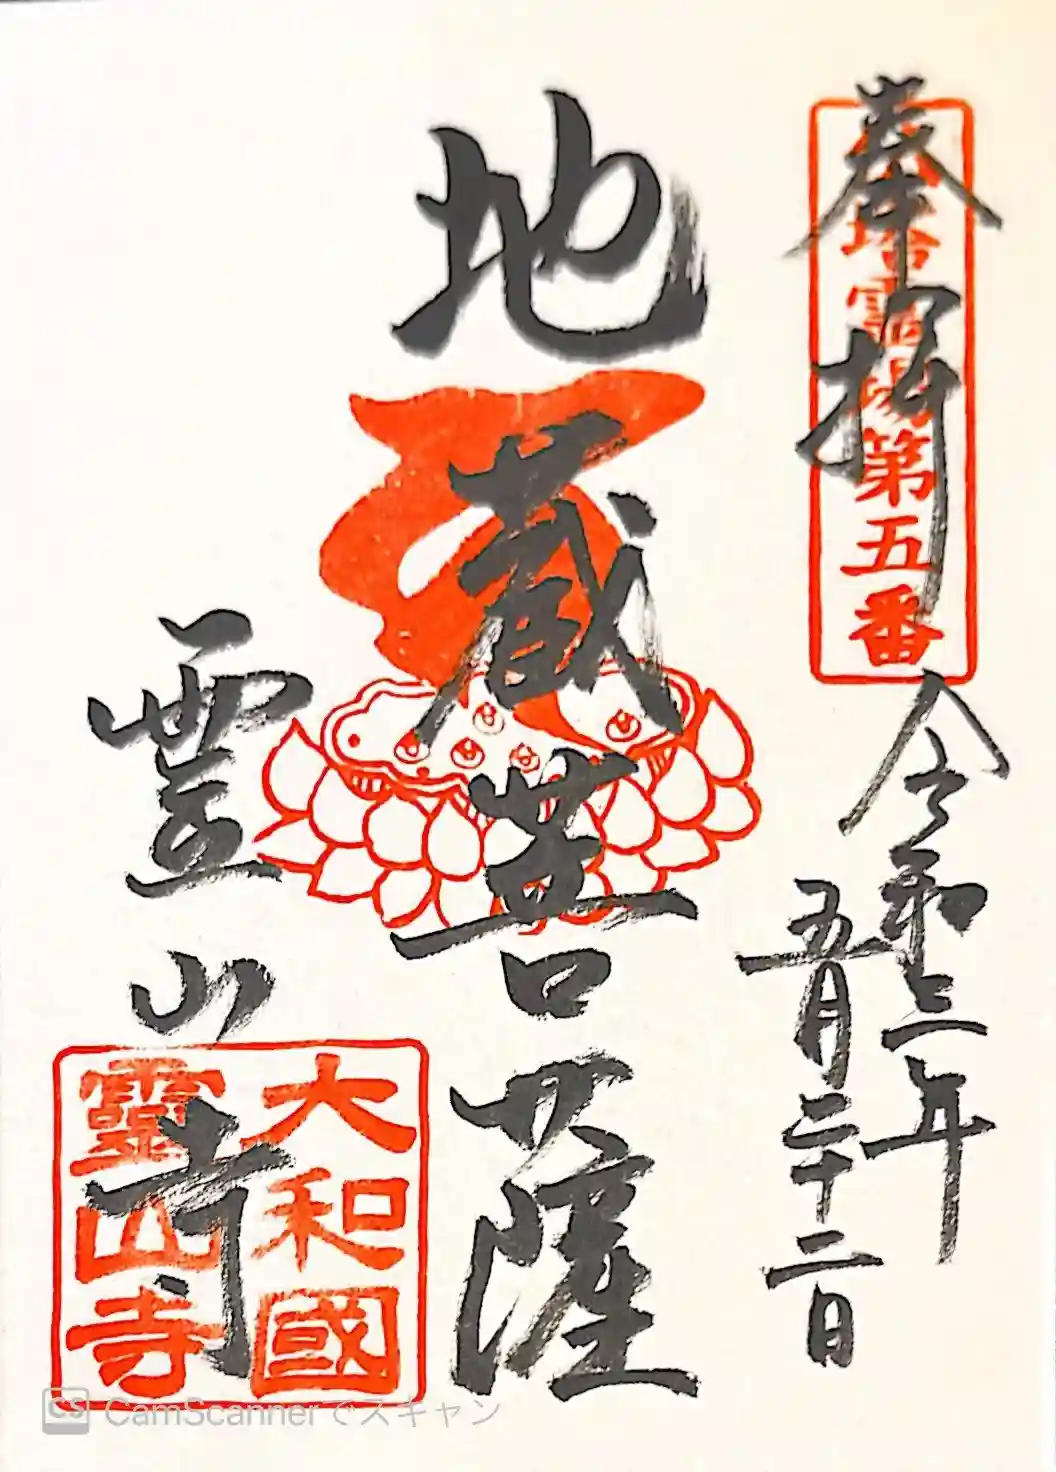 奉拝
塔霊場第五番
令和三年
五月二十二日
地蔵菩薩
霊山寺
大和國
靈山寺
CS CamScannerでスキャン